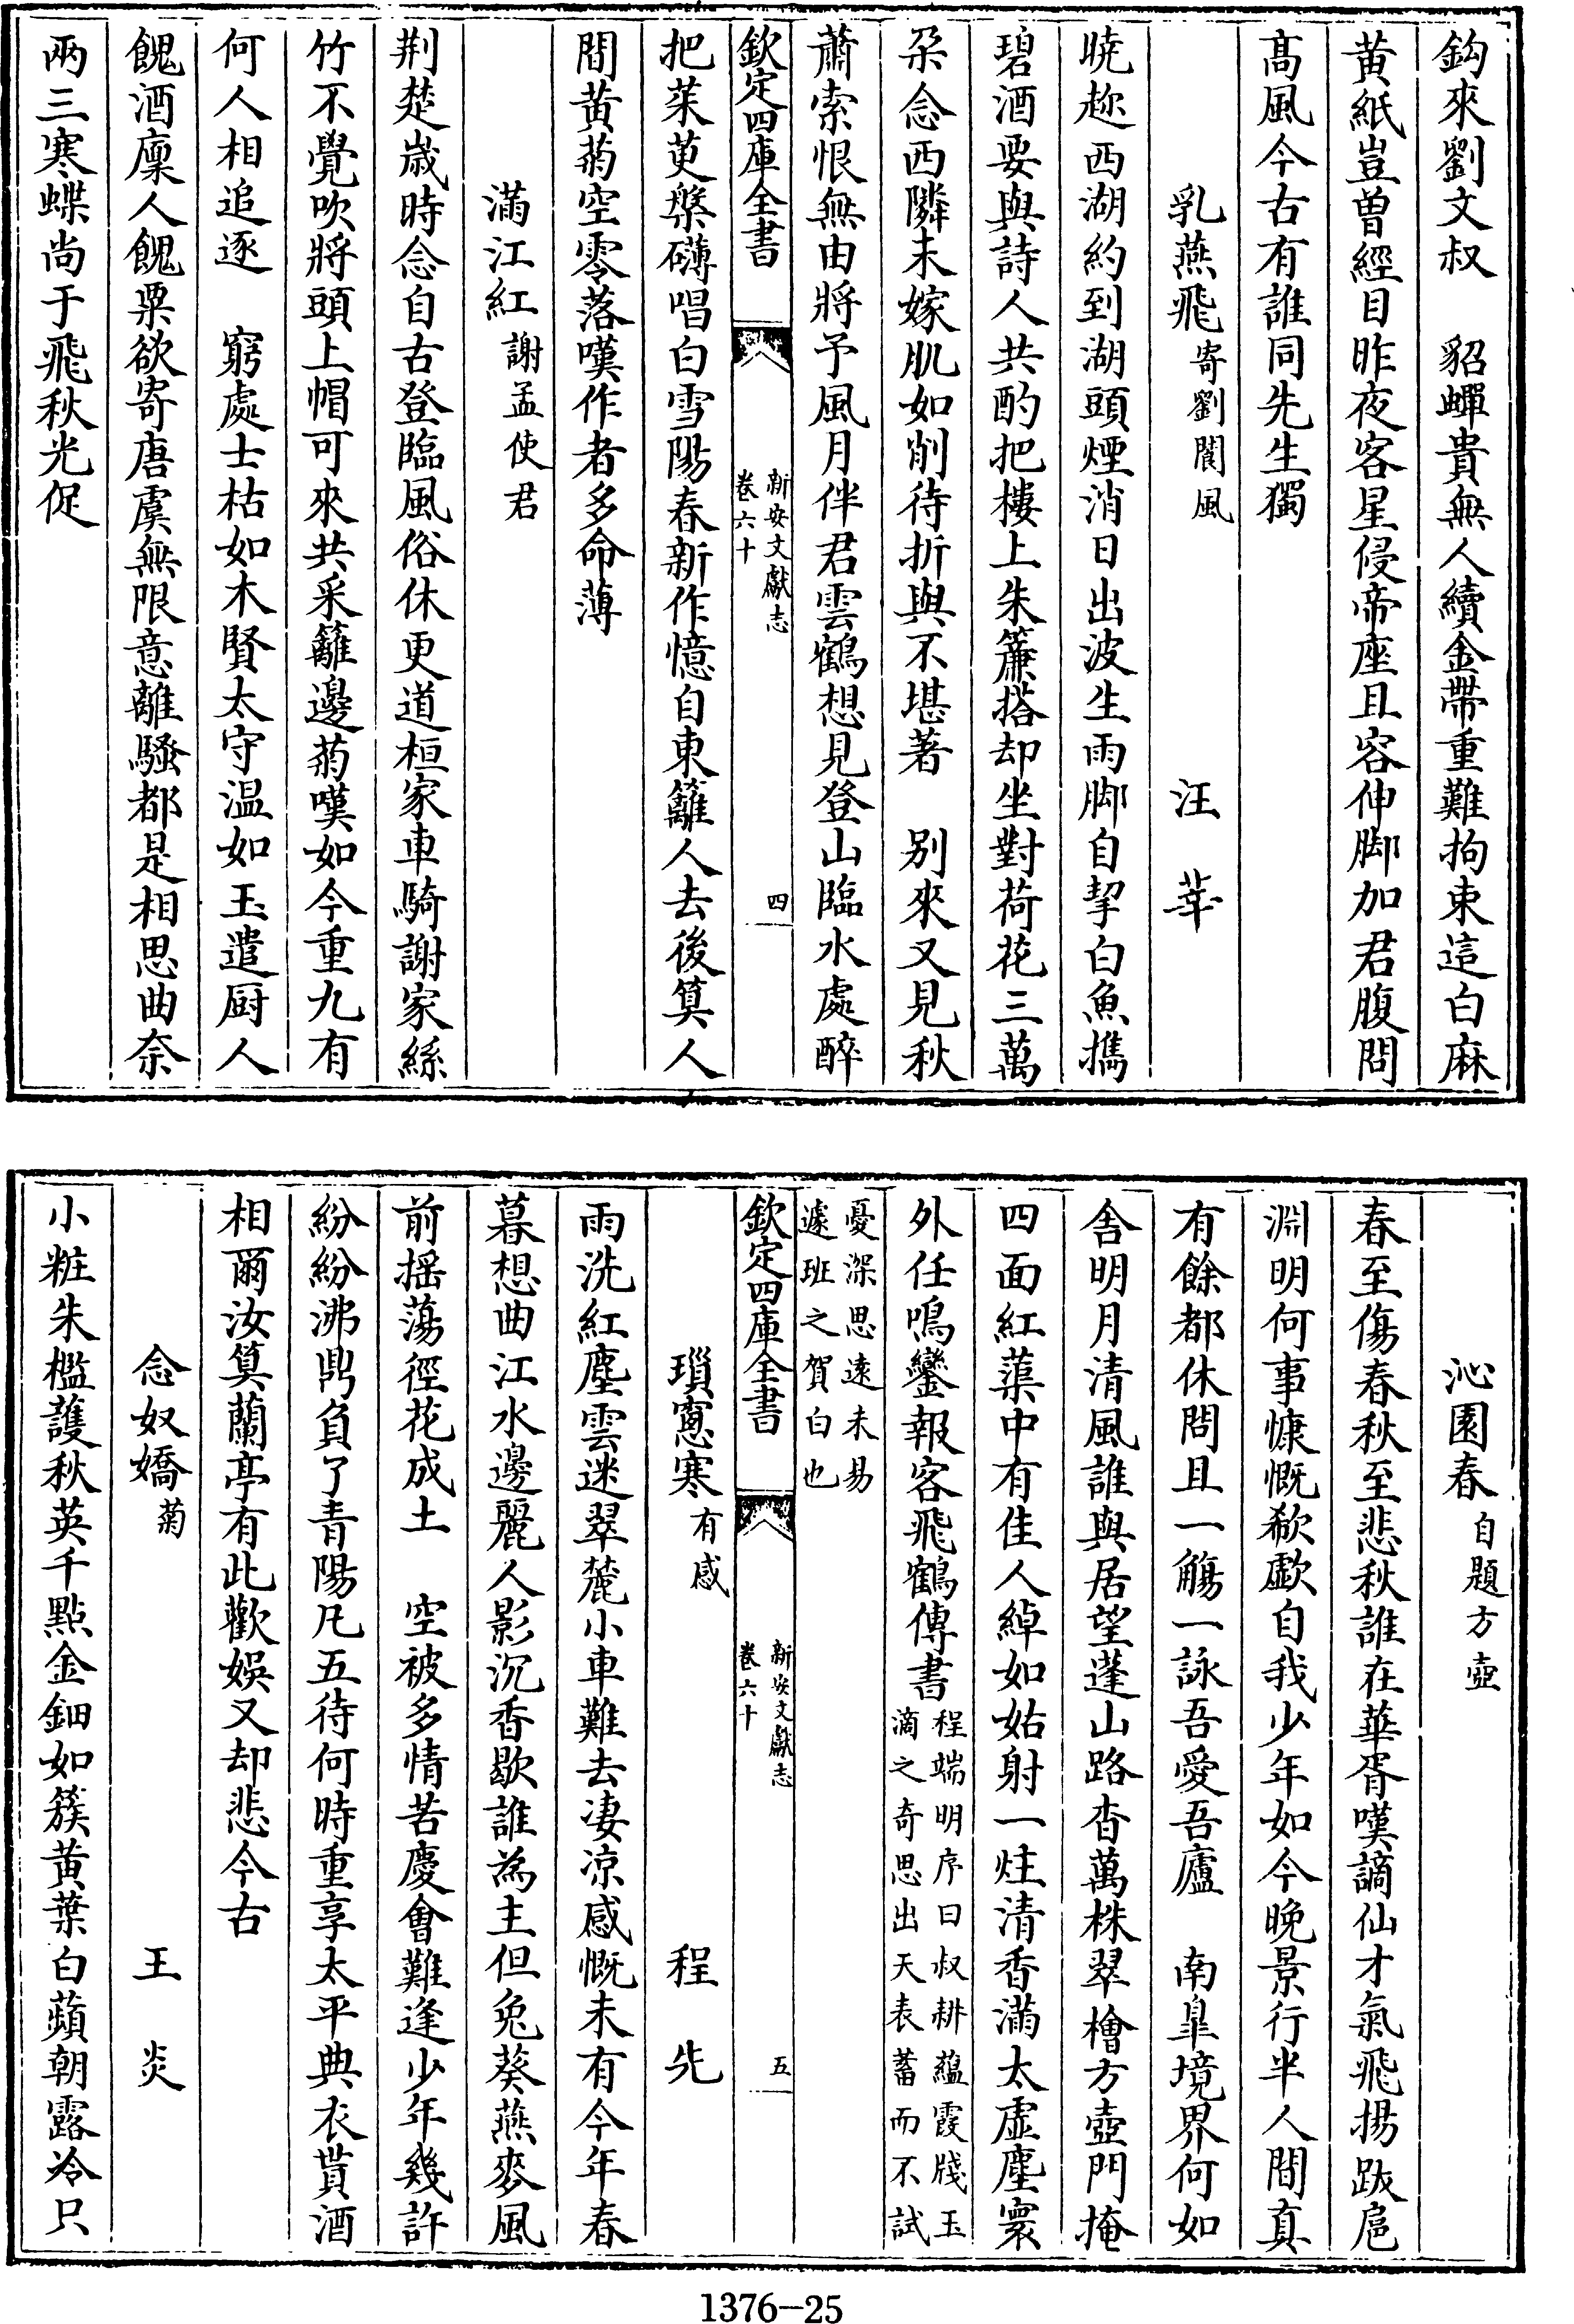 鈎來劉文叔　貂蟬貴無人續金帶重難拘束這白麻
黃紙豈曾經目昨夜客星侵帝座且容伸脚加君腹問
髙風今古有誰同先生獨
乳燕飛寄劉閬風　汪莘
曉趂西湖約到湖頭煙消日出波生雨脚自挈白魚擕
碧酒要與詩人共酌把樓上朱簾搭却坐對荷花三萬
朶念西隣未嫁肌如削待折與不堪著　别來又見秋
蕭索恨無由將予風月伴君雲鶴想見登山臨水處醉
欽定四庫全書　新安文獻志　卷六十　四
把茱萸槃礴唱白雪陽春新作憶自東籬人去後筭人
間黃菊空零落嘆作者多命薄
滿江紅謝孟使君
荆楚嵗時念自古登臨風俗休更道桓家車騎謝家絲
竹不覺吹將頭上帽可來共采籬邊菊嘆如今重九有
何人相追逐　窮處士枯如木賢太守温如玉遣厨人
餽酒廪人餽粟欲寄唐虞無限意離騷都是相思曲奈
兩三寒蝶尚于飛秋光促
沁園春自題方壺
春至傷春秋至悲秋誰在華胥嘆謫仙才氣飛揚跋扈
淵明何事慷慨欷歔自我少年如今晚景行半人間真
有餘都休問且一觴一詠吾愛吾廬　南臯境界何如
舍明月清風誰與居望蓬山路杳萬株翠檜方壺門掩
四面紅蕖中有佳人綽如姑射一炷清香滿太虚塵寰
外任鳴鑾報客飛鶴傳書程端明序曰叔耕藴霞牋玉
滴之奇思出天表蓄而不試
憂深思遠未易
遽班之賀白也
欽定四庫全書　新安文獻志　卷六十　五
瑣窻寒有感　程先
雨洗紅塵雲迷翠麓小車難去凄凉感慨未有今年春
暮想曲江水邊麗人影沉香歇誰為主但兔葵燕麥風
前揺蕩徑花成土　空被多情苦慶會難逢少年幾許
紛紛沸鼎負了青陽凡五待何時重享太平典衣貰酒
相爾汝筭蘭亭有此歡娱又却悲今古
念奴嬌菊　王炎
小粧朱檻䕶秋英千點金鈿如簇黃葉白蘋朝露冷只
1376—25